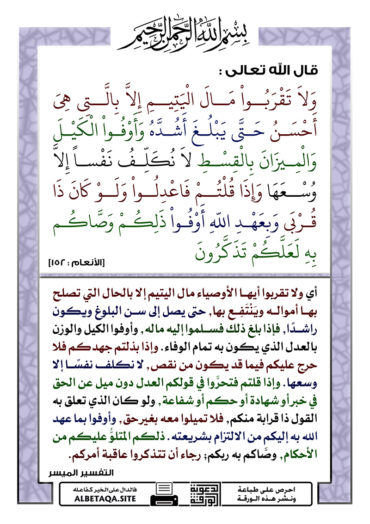 بسم الله الرحمن الرحيم
قال الله تعالى :
وَلَا تَقْرَبُـــواْ مَـــالَ الْيَتِيـــمِ إِلَّا بِالَّـــتِي هِيَ
أَحْسَنُ حَـتَّى يَبْلُـغَ أَشُـدَّهُ وَأَوْفُـواْ الْكَيْـلَ
وَالْمِـيزَانَ بِالْقِسْـطِ لَا نُكَلِّـفُ نَفْسًـا إِلَّا
وُسْـعَهَا وَإِذَا قُلْتُـــمْ فَاعْدِلُــواْ وَلَــوْ كَانَ ذَا
قُــرْبَى وَبِعَهْــدِ اللّهِ أَوْفُــواْ ذَلِكُــمْ وَصَّاكُــم
بِهِ لَعَلَّكُمْ تَذَكَّرُونَ
[الأنعام : ١٥٢]
أي ولا تقربوا أيهـا الأوصياء مال اليتيم إلا بالحال التي تصلح
بهـا أموالـه ويَنْتَفِـع بها, حتى يصل إلى سـن البلوغ ويكون
راشـدًا, فإذا بلغ ذلك فسـلموا إليه ماله, وأوفوا الكيل والوزن
بالعدل الذي يكون به تمام الوفاء. وإذا بذلتم جهدكم فلا
حرج عليكم فيما قد يكون من نقص, لا نكلف نفسًا إلا
وسعها. وإذا قلتم فتحرَّوا في قولكم العدل دون ميل عن الحق
في خبر أو شهادة أو حكم أو شفاعة, ولو كان الذي تعلق به
القول ذا قرابة منكم, فلا تميلوا معه بغير حق, وأوفوا بما عهد
الله به إليكم من الالتزام بشريعته. ذلكم المتلوُّ عليكم من
الأحكام, وصَّاكم به ربكم; رجاء أن تتذكروا عاقبة أمركم.
التفسير الميسر
احرص على طباعة
ونشر هذه الورقة
الدعوية
الورقة
فالدال على الخير كفاعله
ALBETAQA.SITE